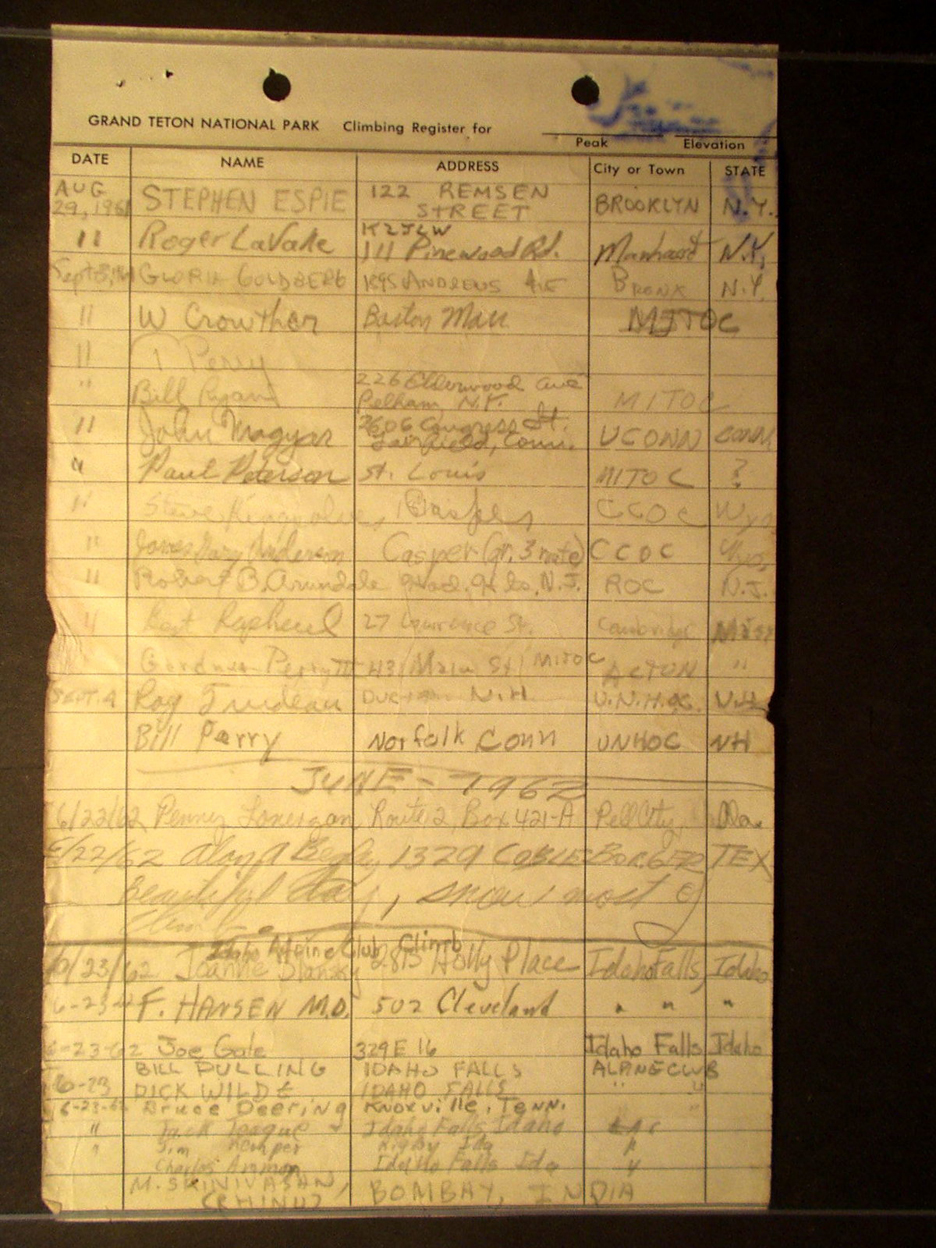 GRAND TETON NATIONAL PARK Climbing Register for
Peak Elevation
DATE NAME ADDRESS City or Town STATE
AUG 29, 1961 STEPHEN ESPIE 122 REMSEN STREET BROOKLYN N.Y.
" Roger LaVake K2JLW 111 Pinewood Rd. N.Y.
GLORIA GOLDBERG 1695 ANDREWS BRONX N.Y.
" W Crowther Boston Mass MITOC
" T Perry
" Bill Ryan 226 Ellerwood Ave Pelham, N.Y. MITOC
" John Magyar 2606 Congress St. Fairfield, Conn. UCONN CONN
" Paul Peterson St. Louis MITOC ?
" Steve Casper CCOC Wyo
" James Gary Anderson Casper (gr. 3 route) CCOC Wyo.
" Robert B. Arundale N.J. ROC N.J.
" Bert Raphael 27 Lawrence St. Cambridge Mass
Gardner Perry III 431 Main St / MITOC ACTON "
SEPT. 4 Roy Durham N.H. U.N.H.O.C. N.H.
Bill Parry Norfolk Conn UNHOC NH
JUNE - 1962
6/22/62 Penney Lonergan Route 2, Box 421-A Pell City, Ala.
6/22/62 1329 COBLE BORGER TEX
Beautiful day, snow most of
climb.
Idaho Alpine Club Climb
6/23/62 Joanne Stansky 2815 Holly Place Idaho Falls, Idaho
6-23- F. HANSEN M.D. 502 Cleveland " " "
6-23-62 Joe Gale 329 E 16 Idaho Falls Idaho
BILL PULLING IDAHO FALLS ALPINE CLUB
6-23 DICK WILDE IDAHO FALLS " "
6-23-62 Bruce Deering Knoxville, Tenn. "
" Jack Teague Idaho Falls Idaho
" Jim Kemper Rigby Ida "
Charles Ammon Idaho Falls Ida "
M. SRINIVASAN, BOMBAY, INDIA